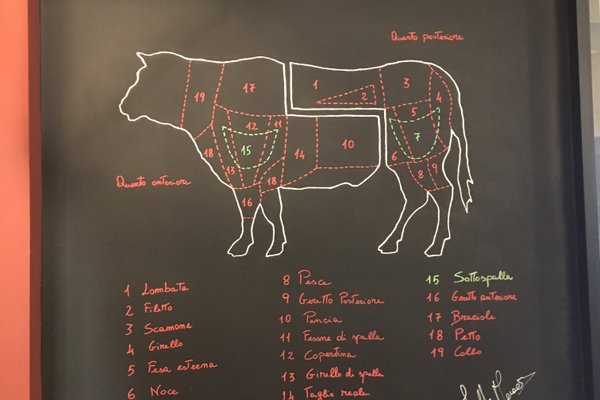 Quarto posteriore
19
17
1
2
3
4
5
7
12
11
15
18
13
18
14
10
6
8
9
16
Quarto anteriore
1 Lombata
2 Filetto
3 Scamone
4 Girello
5 Fesa esterna
6 Noce
8 Pesce
9 Geretto Posteriore
10 Pancia
11 Fesone di spalla
12 Copertina
13 Girello di spalla
14 Taglio reale
15 Sottospalla
16 Geretto anteriore
17 Braciole
18 Petto
19 Collo